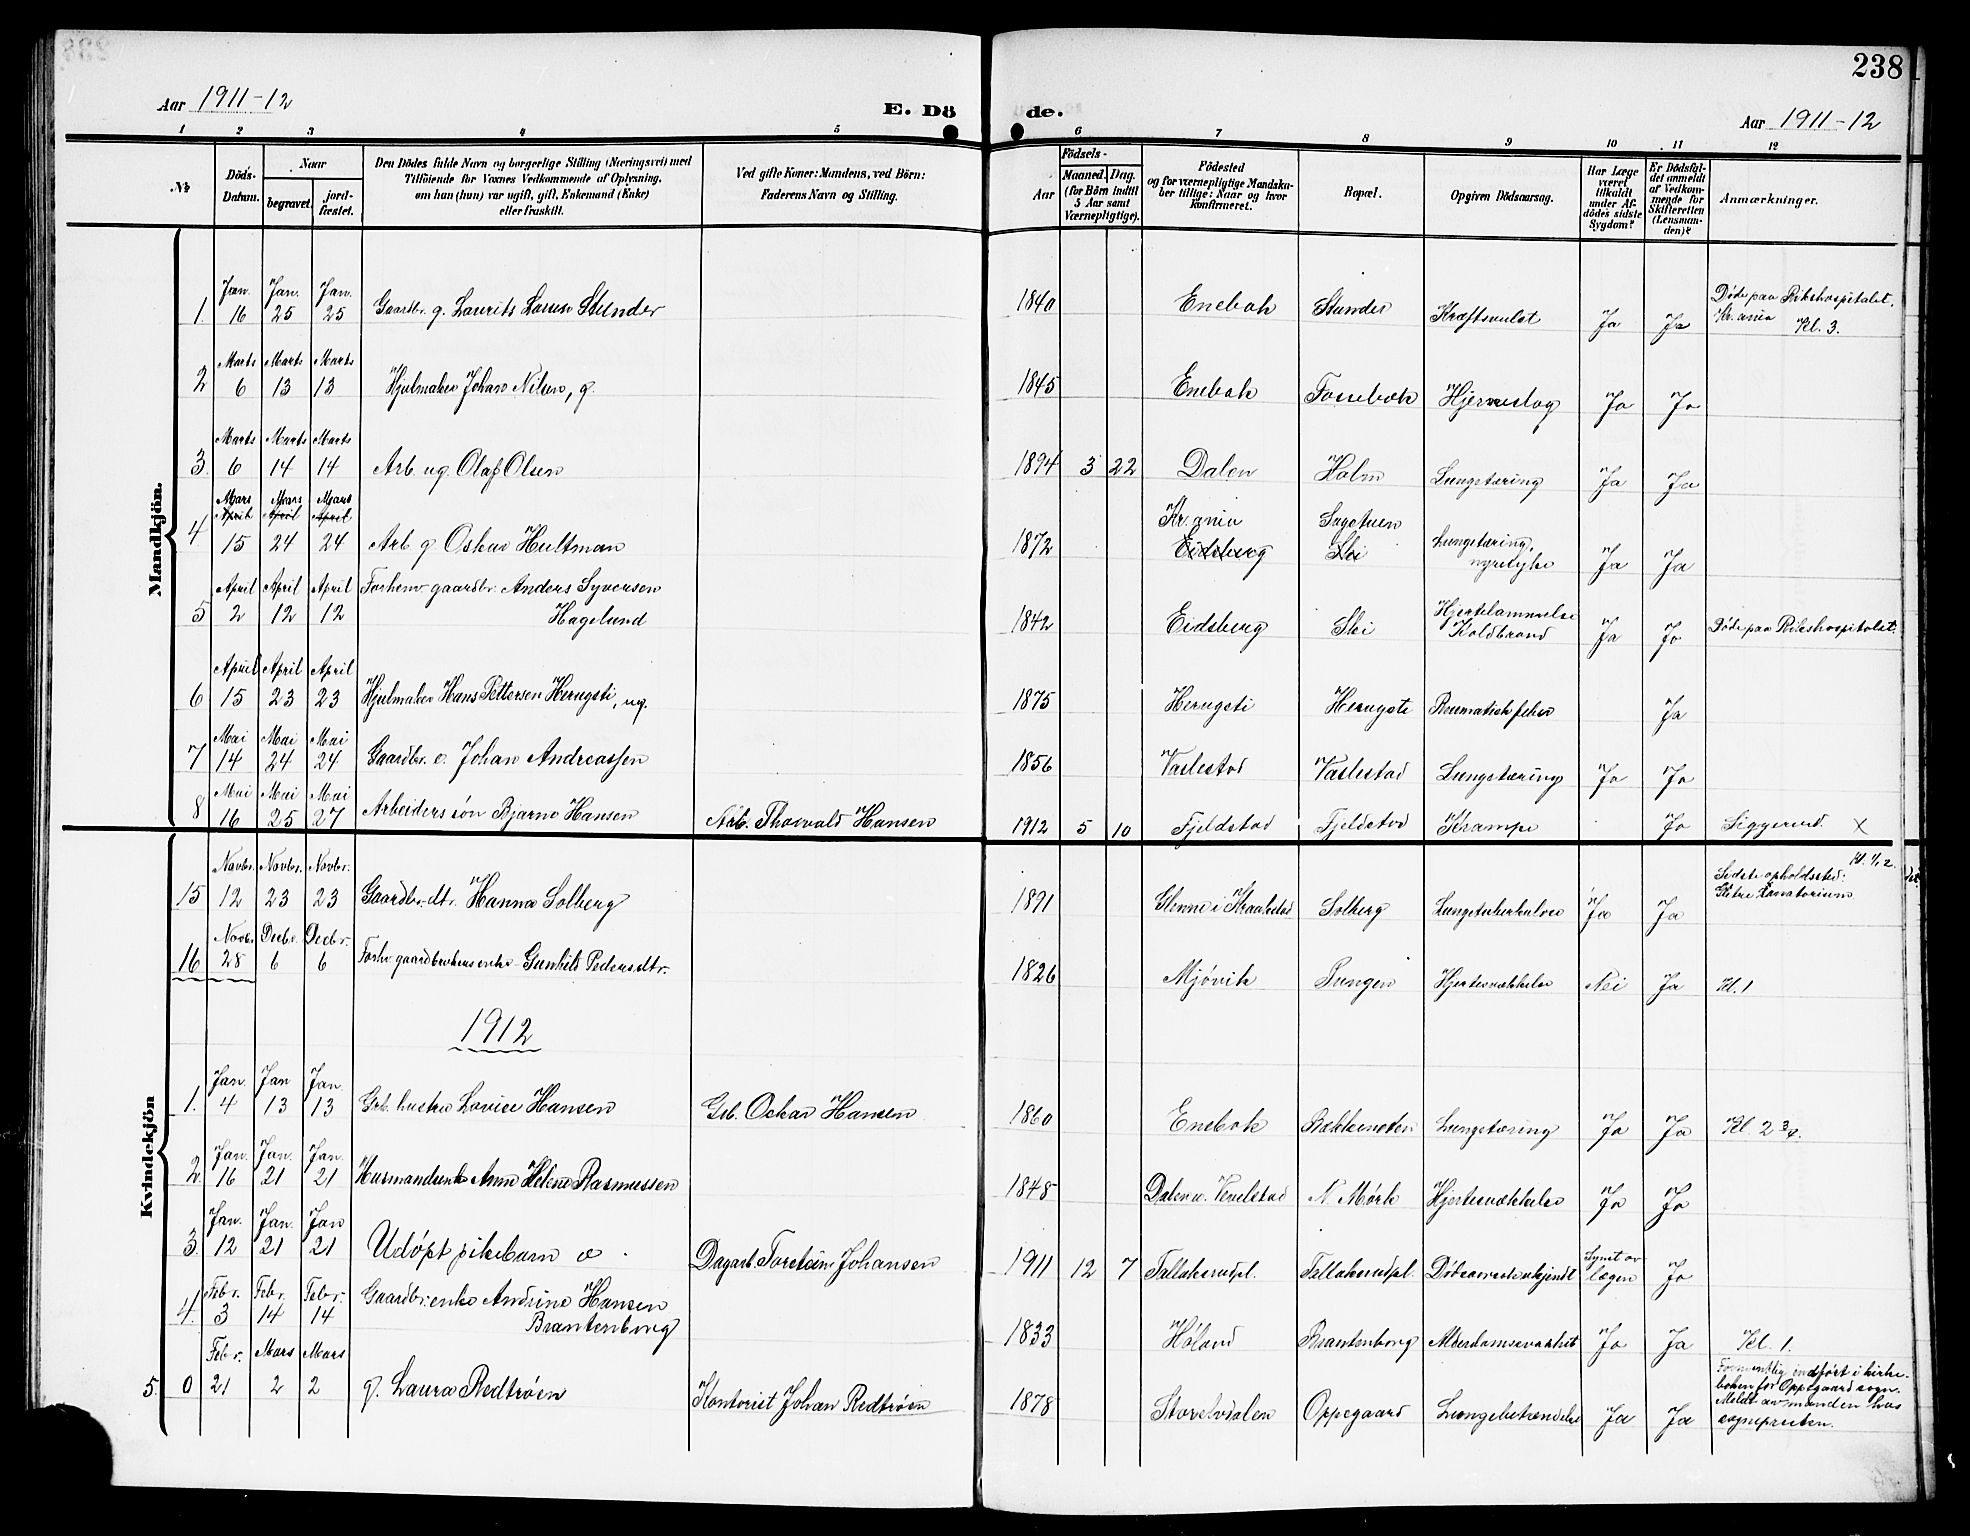 238
Aar 1911-12
E. Dö
de.
Aar 1911-12
1 2 3 4 5 6 7 8 9 10 11 12
№
Döds-Datum.
Naar
begravet.
jord-fæstet.
Den Dödes fulde Navn og borgerlige Stilling (Næringsvei) med
Tilföiende for Voxnes Vedkommende af Oplysning,
om han (hun) var ugift, gift, Enkemand (Enke)
eller fraskilt.
Ved gifte Koner: Mandens, ved Börn:
Faderens Navn og Stilling.
Födsels-
Aar
Maaned.
Dag.
(for Börn indtil
5 Aar samt
Værnepligtige).
Födested
og for værnepligtige Mandska-
ber tillige: Naar og hvor
Konfirmeret.
Bopæl.
Opgiven Dödsaarsag.
Har Læge
været
tilkaldt
under Af-
dödes sidste
Sygdom?
Er Dödsfal-
det anmeldt
af Vedkom-
mende for
Skifteretten
(Lensman-
den)?
Anmærkninger.
Mandkjön.
1. Jan. 16 Jan. 25 Jan. 25 Gaardbr. g. Laurits Larsen Stunder 1840 Enebak Stunder Kræftsvulst Ja Ja Døde paa Rikshospitalet, Kr.ania Kl. 3.
2 Marts 6 Marts 13 Marts 13 Hjulmaker Johan Nilsen, g. 1845 Enebak Fossebæk Hjerneslag Ja Ja
3. Marts 6 Marts 14 Marts 14 Arb. ug. Olaf Olsen 1894 3 22 Dalen Holm Lungetæring Ja Ja
4 Mars April 15 Mars April 24 Mars April 24 Arb. g. Oskar Hultman 1872 Kr.ania Eidsberg Sagstuen Ski Lungetæring, nyrelyke Ja Ja
5 April 2 April 12 April 12 Forhenv. gaardbr. Anders Syversen Hagelund 1842 Eidsberg Ski Hjertelammelse Koldbrand Ja Ja Døde paa Rikshospitalet.
6 April 15 April 23 April 23 Hjulmaker Hans Pettersen Herugsti, ug. 1875 Herugsti Herugsti Reumatisk feber Ja
7 Mai 14 Mai 24 Mai 24 Gaardbr. e. Johan Andreassen 1856 Vaslestad Vaslestad Lungetæring Ja Ja
8 Mai 16 Mai 25 Mai 27 Arbeiders søn Bjarne Hansen Arb. Thorvald Hansen 1912 5 10 Fjeldstad Fjeldstad Krampe Ja Siggerud. X
Kvindekjön
15 Novbr. 12 Novbr. 23 Novbr. 23 Gaardbr. dtr. Hanna Solberg 1891 Glenne i Kraakstad Solberg Lungetuberkulose Ja Ja Sidste opholdssted: Glitre Sanatorium Kl. 1/2 2.
16 Novbr. 28 Decbr. 6 Decbr. 6 Forhv. gaardbrukerenke Gunhild Pedersdtr. 1826 Mjøvik Pungen Hjertesvækkelse Nei Ja Kl. 1
1912
1. Jan. 4 Jan 13 Jan. 13 Grb. hustru Lovise Hansen Grb. Oskar Hansen 1860 Enebak Bækkensten Lungetæring Ja Ja Kl 2 3/4.
2. Jan. 16 Jan. 21 Jan. 21 Husmandsenke Anne Helene Rasmussen 1848 Dalen u. Venelstad N. Mørk Hjertesvækkelse Ja Ja
3. Jan. 12 Jan. 21 Jan 21 Udøpt pikebarn e Dagarb. Torstein Johansen 1911 12 7 Tallaksrudpl. Tallaksrudpl. Dødsaarsak ukjendt Synet av lægen Ja
4. Febr. 3 Febr. 14 Febr. 14 Gaardbr. enke Andrine Hansen Brantenborg 1833 Høland Brantenborg Alderdomssvakhet Ja Ja Kl. 1.
5. 0 Febr. 21 Mars 2 Mars 2 g. Laura Redtrøen Kontorist Johan Redtrøen 1878 Storelvdalen Oppegaard Lungebetændelse Ja Ja Formentlig indført i kirke-boken for Oppegaard sogn. Meldt av manden hos sogneprest​en.